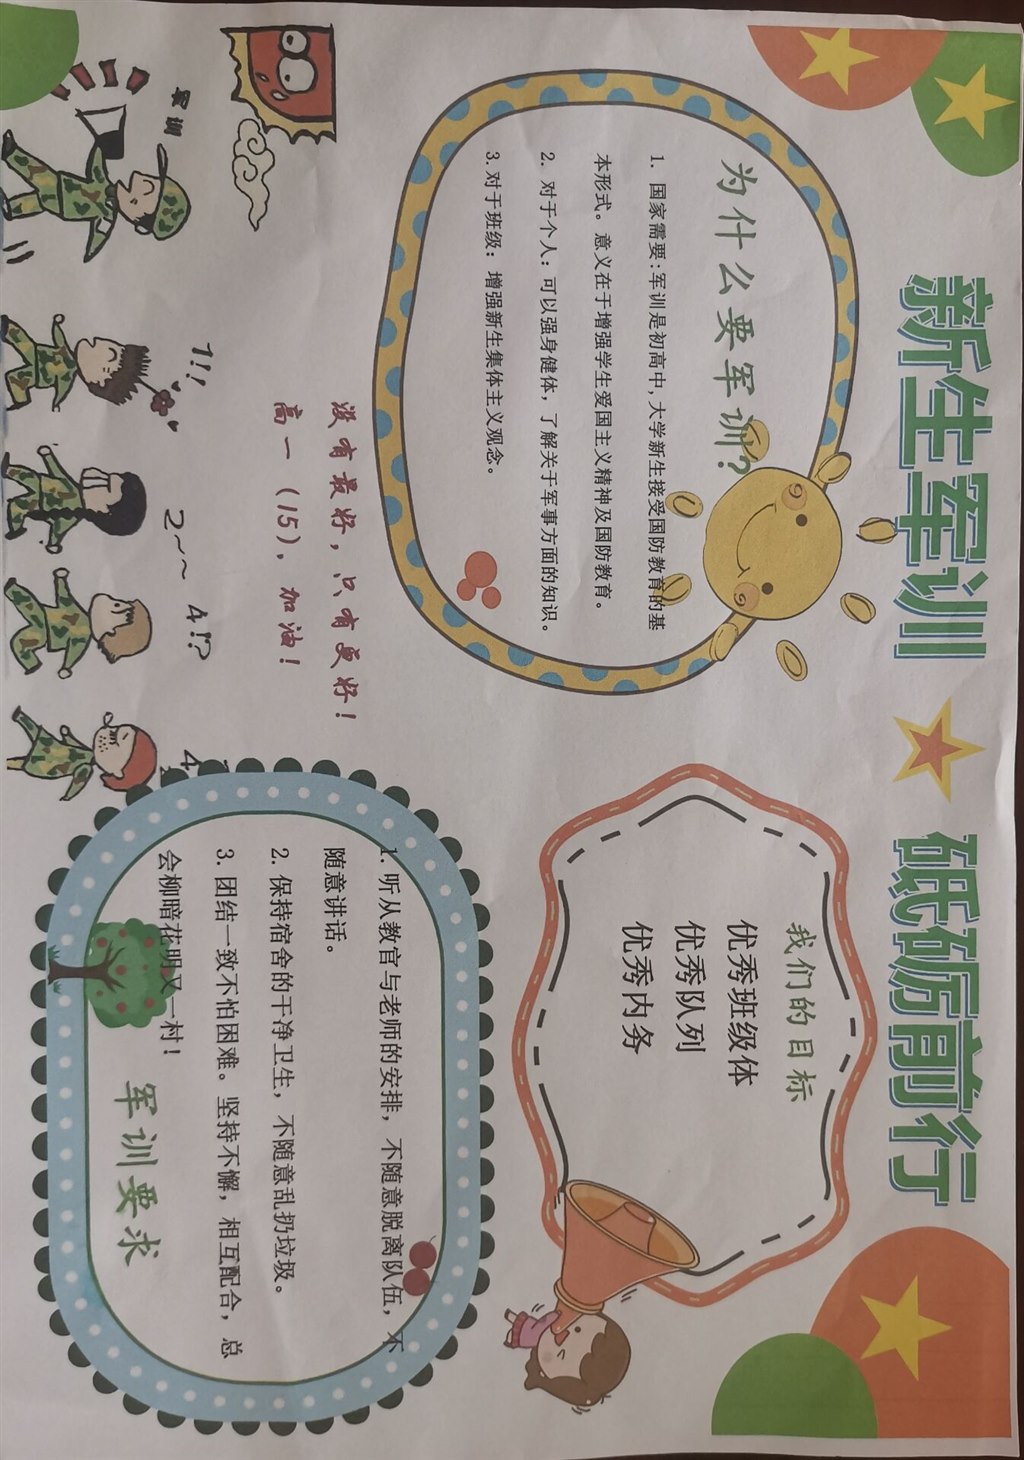 新生军训 砥砺前行
为什么要军训？
1. 国家需要：军训是初高中，大学新生接受国防教育的基
本形式。意义在于增强学生爱国主义精神及国防教育。
2. 对于个人：可以强身健体，了解关于军事方面的知识。
3. 对于班级：增强新生集体主义观念。
我们的目标
优秀班级体
优秀队列
优秀内务
没有最好，只有更好！
高一（15），加油！
军训
1!!,
2~~
4!?
4
1. 听从教官与老师的安排，不随意脱离队伍，不
随意讲话。
2. 保持宿舍的干净卫生，不随意乱扔垃圾。
3. 团结一致不怕困难。坚持不懈，相互配合，总
会柳暗花明又一村！
军训要求